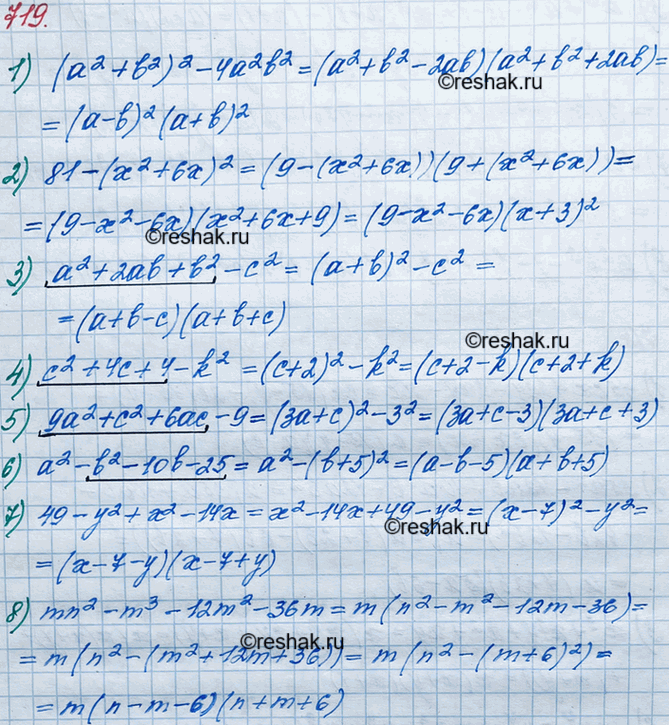 719.
1) (a² + b²)² - 4a²b² = (a² + b² - 2ab)(a² + b² + 2ab) =
= (a-b)² (a+b)²
2) 81 - (x² + 6x)² = (9 - (x² + 6x))(9 + (x² + 6x)) =
= (9 - x² - 6x)(x² + 6x + 9) = (9 - x² - 6x)(x + 3)²
©reshak.ru
3) a² + 2ab + b² - c² = (a+b)² - c² =
= (a+b-c)(a+b+c)
©reshak.ru
4) c² + 4c + 4 - k² = (c+2)² - k² = (c+2-k)(c+2+k)
5) 9a² + c² + 6ac - 9 = (3a+c)² - 3² = (3a+c-3)(3a+c+3)
6) a² - b² - 10b - 25 = a² - (b+5)² = (a-b-5)(a+b+5)
7) 49 - y² + x² - 14x = x² - 14x + 49 - y² = (x-7)² - y² =
©reshak.ru
= (x-7-y)(x-7+y)
8) mn² - m³ - 12m² - 36m = m(n² - m² - 12m - 36) =
©reshak.ru
= m(n² - (m² + 12m + 36)) = m(n² - (m+6)²) =
= m(n-m-6)(n+m+6)
©reshak.ru